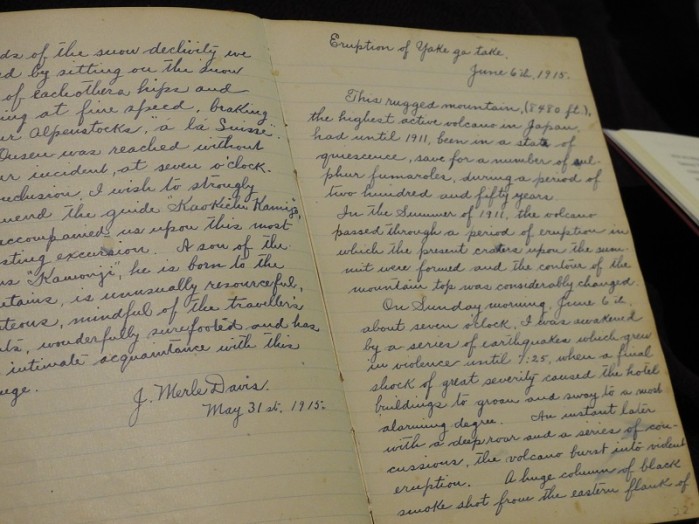 ds of the snow declivity we
ed by sitting on the snow
of eachothers hips and
ing at fine speed, braking
ur Alpenstocks, "a la Suisse".
Onsen was reached without
ur incident, at seven o'clock.
nclusion, I wish to strongly
mend the guide "Kaokichi Kamijo,
accompanied us upon this most
sting excursion. A son of the
us "Kamonji", he is born to the
tains, is unusually resourceful,
teous, mindful of the traveller's
ts, wonderfully surefooted and has
intimate acquaintance with this
nge.
J. Merle Davis.
May 31st. 1915.
Eruption of Yake ga take.
June 6th, 1915.
This rugged mountain, (8480 ft.),
the highest active volcano in Japan,
had until 1911, been in a state of
quiescence, save for a number of sul-
phur fumaroles, during a period of
two hundred and fifty years.
In the Summer of 1911, the volcano
passed through a period of eruption in
which the present craters upon the sum-
mit were formed and the contour of the
mountain top was considerably changed.
On Sunday morning, June 6th,
about seven o'clock, I was awakened
by a series of earthquakes which grew
in violence until 7:25, when a final
shock of great severity caused the hotel
buildings to groan and sway to a most
alarming degree. An instant later
with a deep roar and a series of con-
cussions, the volcano burst into violent
eruption. A huge column of black
smoke shot from the eastern flank of
22